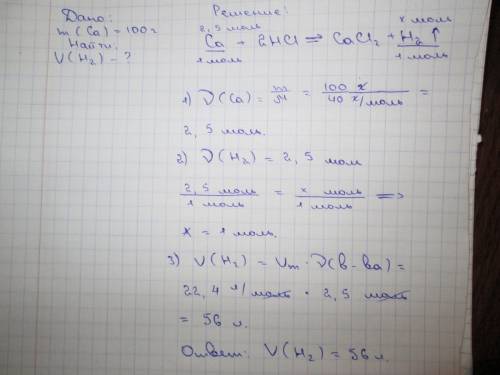 Дано:
m(Ca) = 100г
Найти:
V(H₂) - ?
Решение:
2,5 моль x моль
Ca + 2HCl => CaCl₂ + H₂ ↑
1 моль 1 моль
1) ν(Ca) = m/M = 100 г / 40 г/моль =
2,5 моль.
2) ν(H₂) = 2,5 моль
2,5 моль / 1 моль = x моль / 1 моль =>
x = 1 моль.
3) V(H₂) = Vm · ν(в-ва) =
22,4 л/моль · 2,5 моль
= 56 л.
Ответ: V(H₂) = 56 л.